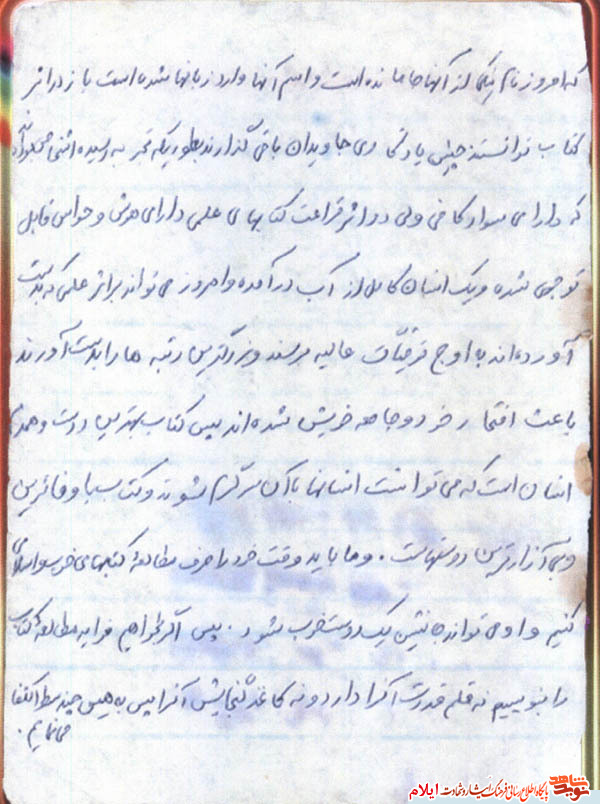 که امروز نام نیکی از آنها بجا مانده است و اسم آنها وارد زبانها شده است باز در اثر
کتاب توانستند چنین یادگاری جاویدان باقی گذارند بطوریکه تجربه رسیده اشخاصی
که دارای سواد کافی ولی در اثر قرائت کتابهای علمی دارای هوش و حواس قابل
توجهی شده و یک انسان کامل از آب درآمده و امروز می تواند براثر علمی که بدست
آورده اند به اوج ترقیات عالیه می رسند و بزرگترین رتبه ها را بدست آورند
باعث افتخار خود و جامعه خویش شده اند پس کتاب بهترین دوست و همدم
انسان است که می توانست انسانها با آن سرگرم شوند و کتاب با وفاترین
و بی آزارترین دوستهاست. و ما باید وقت خود را صرف مطالعهٔ کتابهای خوب و اسلامی
کنیم و او می تواند جانشین یک دوست خوب بشود. پس اگر بخواهیم فواید مطالعهٔ کتاب
را بنویسیم نه قلم قدرت آنرا دارد و نه کاغذ گنجایش آنرا پس به همین چند سطر اکتفا
می نمایم.
نوید شاهد
پایگاه اطلاع رسانی فرهنگ ایثار و شهادت ایلام